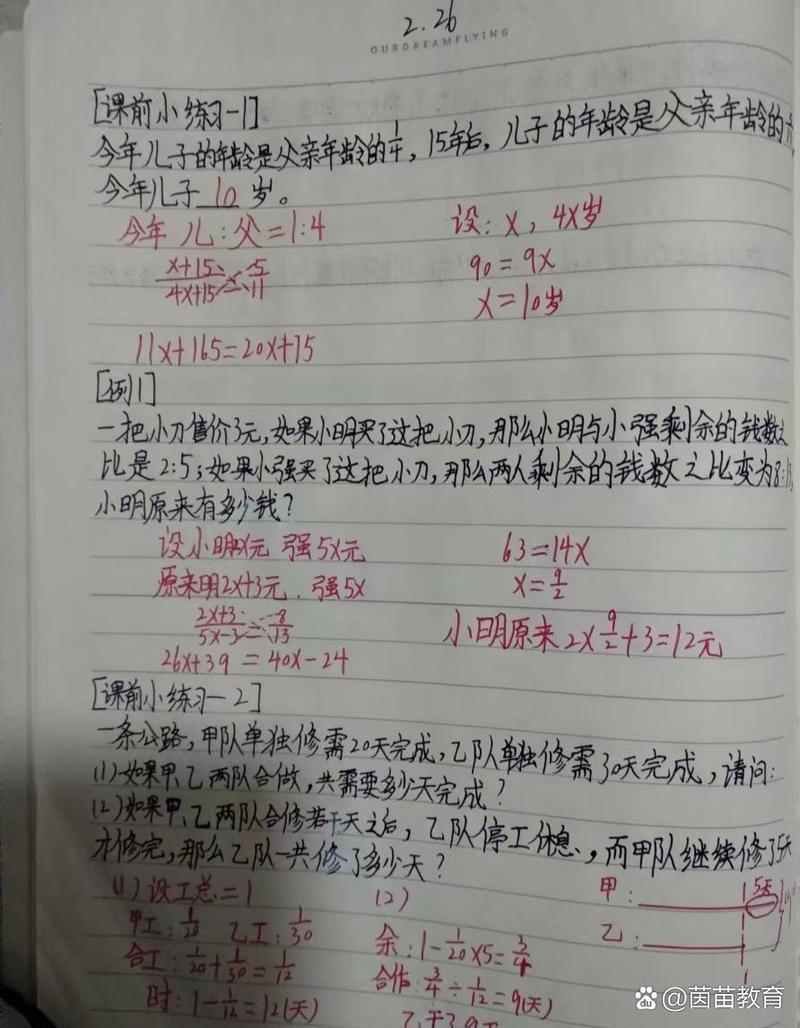 2.26
OURDREAMFLYING
[课前小练习-1]
今年儿子的年龄是父亲年龄的1/4，15年后，儿子的年龄是父亲年龄的
今年儿子 10 岁。
今年 儿:父=1:4
设: x, 4x岁
(x+15)/(4x+15)=5/11
90=9x
x=10岁
11x+165=20x+75
[例1]
一把小刀售价3元,如果小明买了这把小刀,那么小明与小强剩余的钱数之
比是2:5;如果小强买了这把小刀,那么两人剩余的钱数之比变为8:13,
小明原来有多少钱?
设小明2x元 强5x元
63=14x
原来明2x+3元. 强5x
x=9/2
(2x+3)/(5x-3)=8/13
小明原来2x9/2+3=12元
26x+39=40x-24
[课前小练习-2]
一条公路,甲队单独修需20天完成,乙队单独修需30天完成,请问:
(1)如果甲、乙两队合做,共需要多少天完成?
(2)如果甲、乙两队合修若干天之后,乙队停工休息,而甲队继续修了5天
才修完,那么乙队一共修了多少天?
(1)设工总=1
(2)
甲:
5天
甲工:1/20 乙工:1/30
余:1-1/20×5=3/4
乙:
合工:1/20+1/30=1/12
合作:3/4÷1/12=9(天)
时:1-1/12=12(天)
@茵苗教育